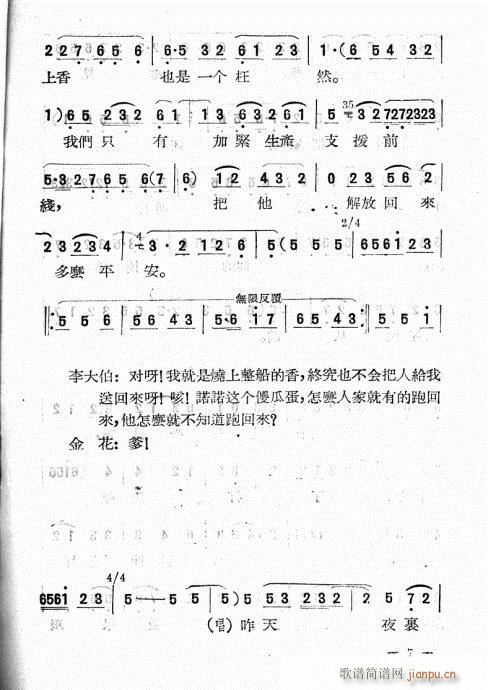 2 2 7 6 5 6 | 6·5 3 2 6 1 2 3 | 1·(6 5 4 3 2
上香 也是一个枉 然。
1) 6 5 2 3 2 6 1 | 1 3 6 3 2 6 1 | 5 35 3 2 7272323
我們只 有 加緊生產 支援前
5·3 2 7 6 5 6 (7 6) | 1·2 4 3 2 | 0 2 3 5 6 2
綫， 把他 解放回來
2/4
2 3 2 3 4 | 3·2 1 2 6 | 5 (5 5 | 6561 5 6 2
多麽平安。
無限反覆
5 5 6 | 5 6 4 3 | 5·6 1 7 | 6 5 4 3 | 5 5 1
李大伯：对呀！我就是燒上整船的香，終究也不会把人給我
送回來呀！咳！諾諾这个傻瓜蛋，怎麽人家就有的跑回
來，他怎麽就不知道跑回來？
金 花：爹！
4/4
6561 2 3 | 5 - 5 5 | 5 - (5 3 2 | 1) 5 3 2 3 2 | 5 7 2
(唱)昨天 夜裏
7
歌谱简谱网
jianpu.cn